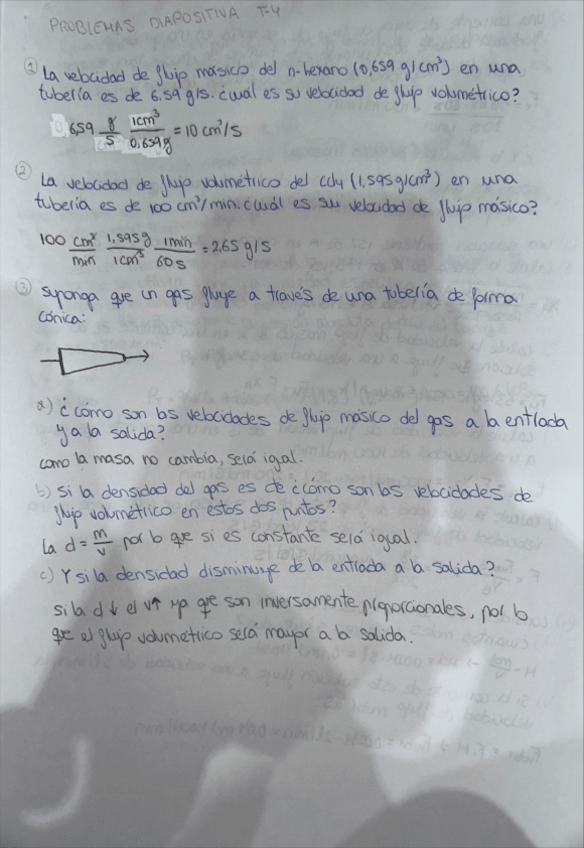 PROBLEMAS DIAPOSITIVA T-4
① La velocidad de flujo másico del n-hexano (0,659 g/cm³) en una
tubería es de 6.59 g/s. ¿cuál es su velocidad de flujo volumétrico?
0,659 g/s 1cm³/0,659g = 10 cm³/s
② La velocidad de flujo volumétrico del CCl4 (1,595 g/cm³) en una
tubería es de 100 cm³/min. ¿cuál es su velocidad de flujo másico?
100 cm³/min 1,595g/1cm³ 1min/60s = 2,65 g/s
③ Suponga que un gas fluye a través de una tubería de forma
cónica:
a) ¿cómo son las velocidades de flujo másico del gas a la entrada
y a la salida?
como la masa no cambia, será igual.
b) Si la densidad del gas es cte ¿cómo son las velocidades de
flujo volumétrico en estos dos puntos?
La d = m/v por lo que si es constante será igual.
c) Y si la densidad disminuye de la entrada a la salida?
si la d ↓ el v↑ ya que son inversamente proporcionales, por lo
que el flujo volumétrico será mayor a la salida.